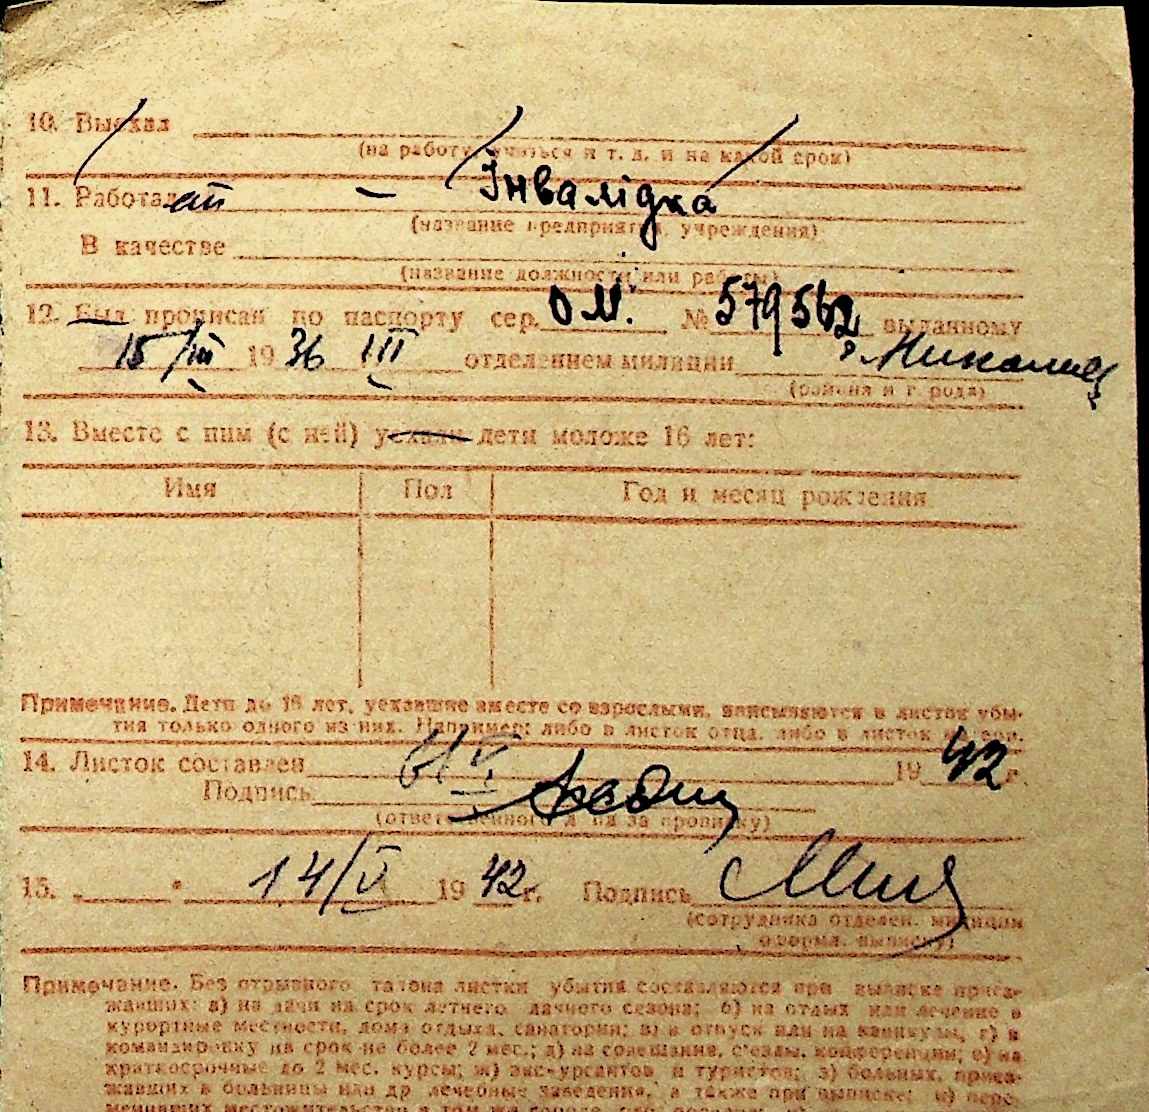 10. Выехал
(на работу, учиться и т. д. и на какой срок)
11. Работал - Інвалідка
(название предприятия, учреждения)
В качестве
(название должности или работы)
12. Был прописан по паспорту сер. ОМ. № 579562 выданному
15/III 1936 III отделением милиции г.
(района и города)
13. Вместе с ним (с ней) уехали дети моложе 16 лет:
Имя Пол Год и месяц рождения
Примечание. Дети до 16 лет, уехавшие вместе со взрослыми, вписываются в листок убы-
тия только одного из них. Например: либо в листок отца, либо в листок матери.
14. Листок составлен 6/V 1942 г.
Подпись
(ответственного лица за прописку)
15. " " 14/V 1942 г. Подпись
(сотрудника отделен. милиции
оформл. выписку)
Примечание. Без отрывного талона листки убытия составляются при выписке приез-
жавших: а) на дачи на срок летнего дачного сезона; б) на отдых или лечение в
курортные местности, дома отдыха, санатории; в) в отпуск или на каникулы, г) в
командировку на срок не более 2 мес.; д) на совещания, с'езды, конференции; е) на
краткосрочные до 2 мес. курсы; ж) экскурсантов и туристов; з) больных, приез-
жавших в больницы или др лечебные заведения, а также при выписке: и) пере-
менивших местожительство в том же городе